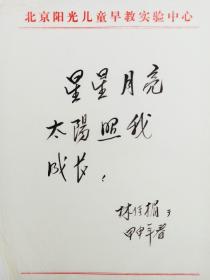 北京阳光儿童早教实验中心
星星月亮
太陽照我
成长，
甲申年春